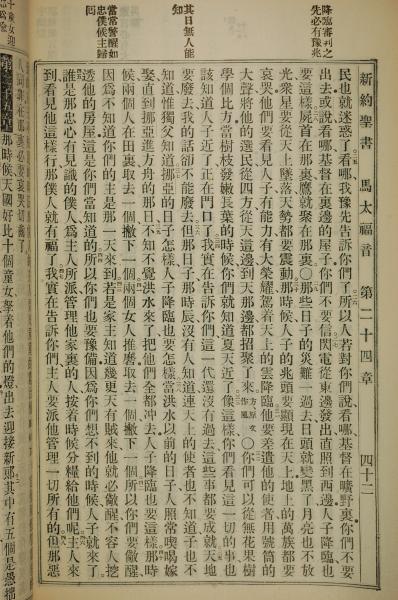 降臨審判之
先必有豫兆
其日無人能
知
當常警醒如
忠僕候主歸
回
新約聖書 馬太福音 第二十四章 四十二
民也就迷惑了看哪我豫先告訴你們了所以人若對你們說看哪基督在曠野裏你們不要
出去或說看哪基督在裏邊的屋子你們不要信閃電從東邊發出直照到西邊人子降臨也
要這樣屍首在那裏鷹就聚在那裏〇那些日子的災難一過去日頭就變黑了月亮也不放
光衆星要從天上墜落天勢都要震動那時候人子的兆頭要顯現在天上地上的萬族都要
哀哭他們要看見人子有能力有大榮耀駕着天上的雲降臨他要差遣他的使者用號筒的
大聲將他的選民從四方從天這邊到天那邊都招聚了來〇你們可以從無花果樹
學個比方當樹枝發嫩長葉的時候你們就知道夏天近了像這樣你們看見這一切的事也
該知道人子近了正在門口了我實在告訴你們這一代還沒有過去這些事都要成就天地
要廢去我的話却不能廢去但那日子那時辰沒有人知道連天上的使者也不知道子也不
知道惟獨父知道挪亞的日子怎樣人子降臨也要怎樣當洪水以前的日子人照常喫喝嫁
娶直到挪亞進方舟的那日不知不覺洪水來了把他們全都冲去人子降臨也要這樣那時
候兩個人在田裏取去一個撇下一個兩個女人推磨取去一個撇下一個所以你們要儆醒
因爲不知道你們的主是那一天來到若是家主知道幾更天有賊來他就必儆醒不容人挖
透他的房屋這是你們當知道的所以你們也要豫備因爲你們想不到的時候人子就來了
誰是那忠心有見識的僕人爲主人所派管理他家裏的人按着時候分糧給他們呢主人來
到看見他這樣行那僕人就有福了我實在告訴你們主人要派他管理一切所有的但那惡
那時候天國好比十個童女拏着他們的燈出去迎接新郎其中有五個是愚拙